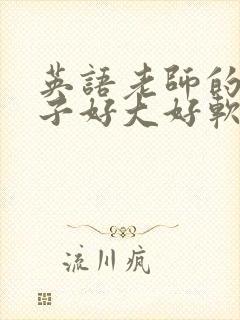 英語老師的
子好大好軟
流川疯